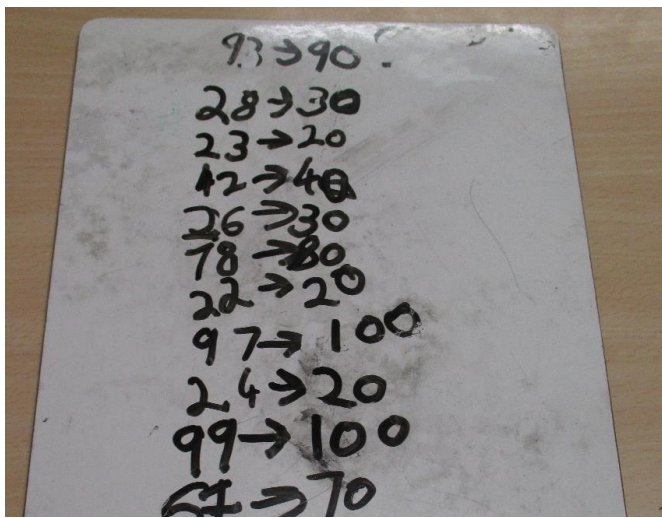 93→90
28→30
23→20
42→40
26→30
78→80
22→20
97→100
24→20
99→100
67→70